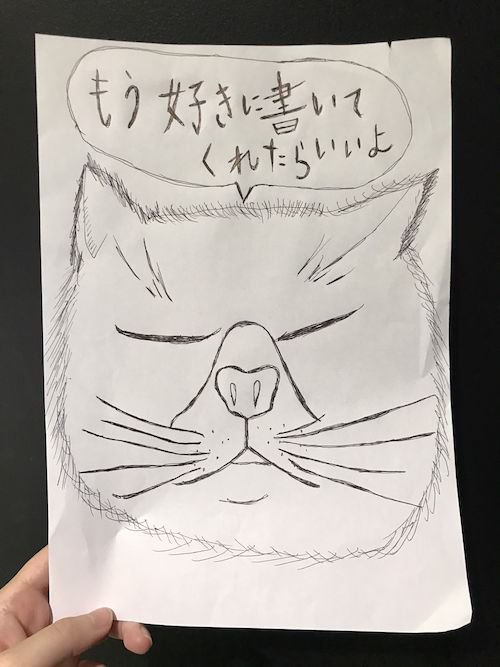 もう好きに書いて
くれたらいいよ